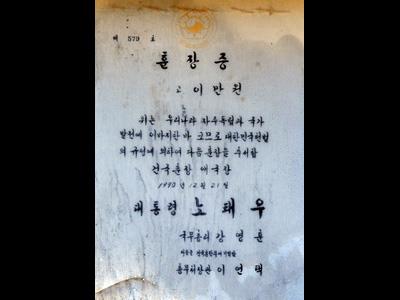 제 579 호
훈장증
고 이만원
위는 우리나라 자주독립과 국가
발전에 이바지한 바 크므로 대한민국헌법
의 규정에 의하여 다음 훈장을 추서함
건국훈장 애국장
1990년 12월 21일
대통령 노태우
국무총리 강영훈
총무처장관 이연택